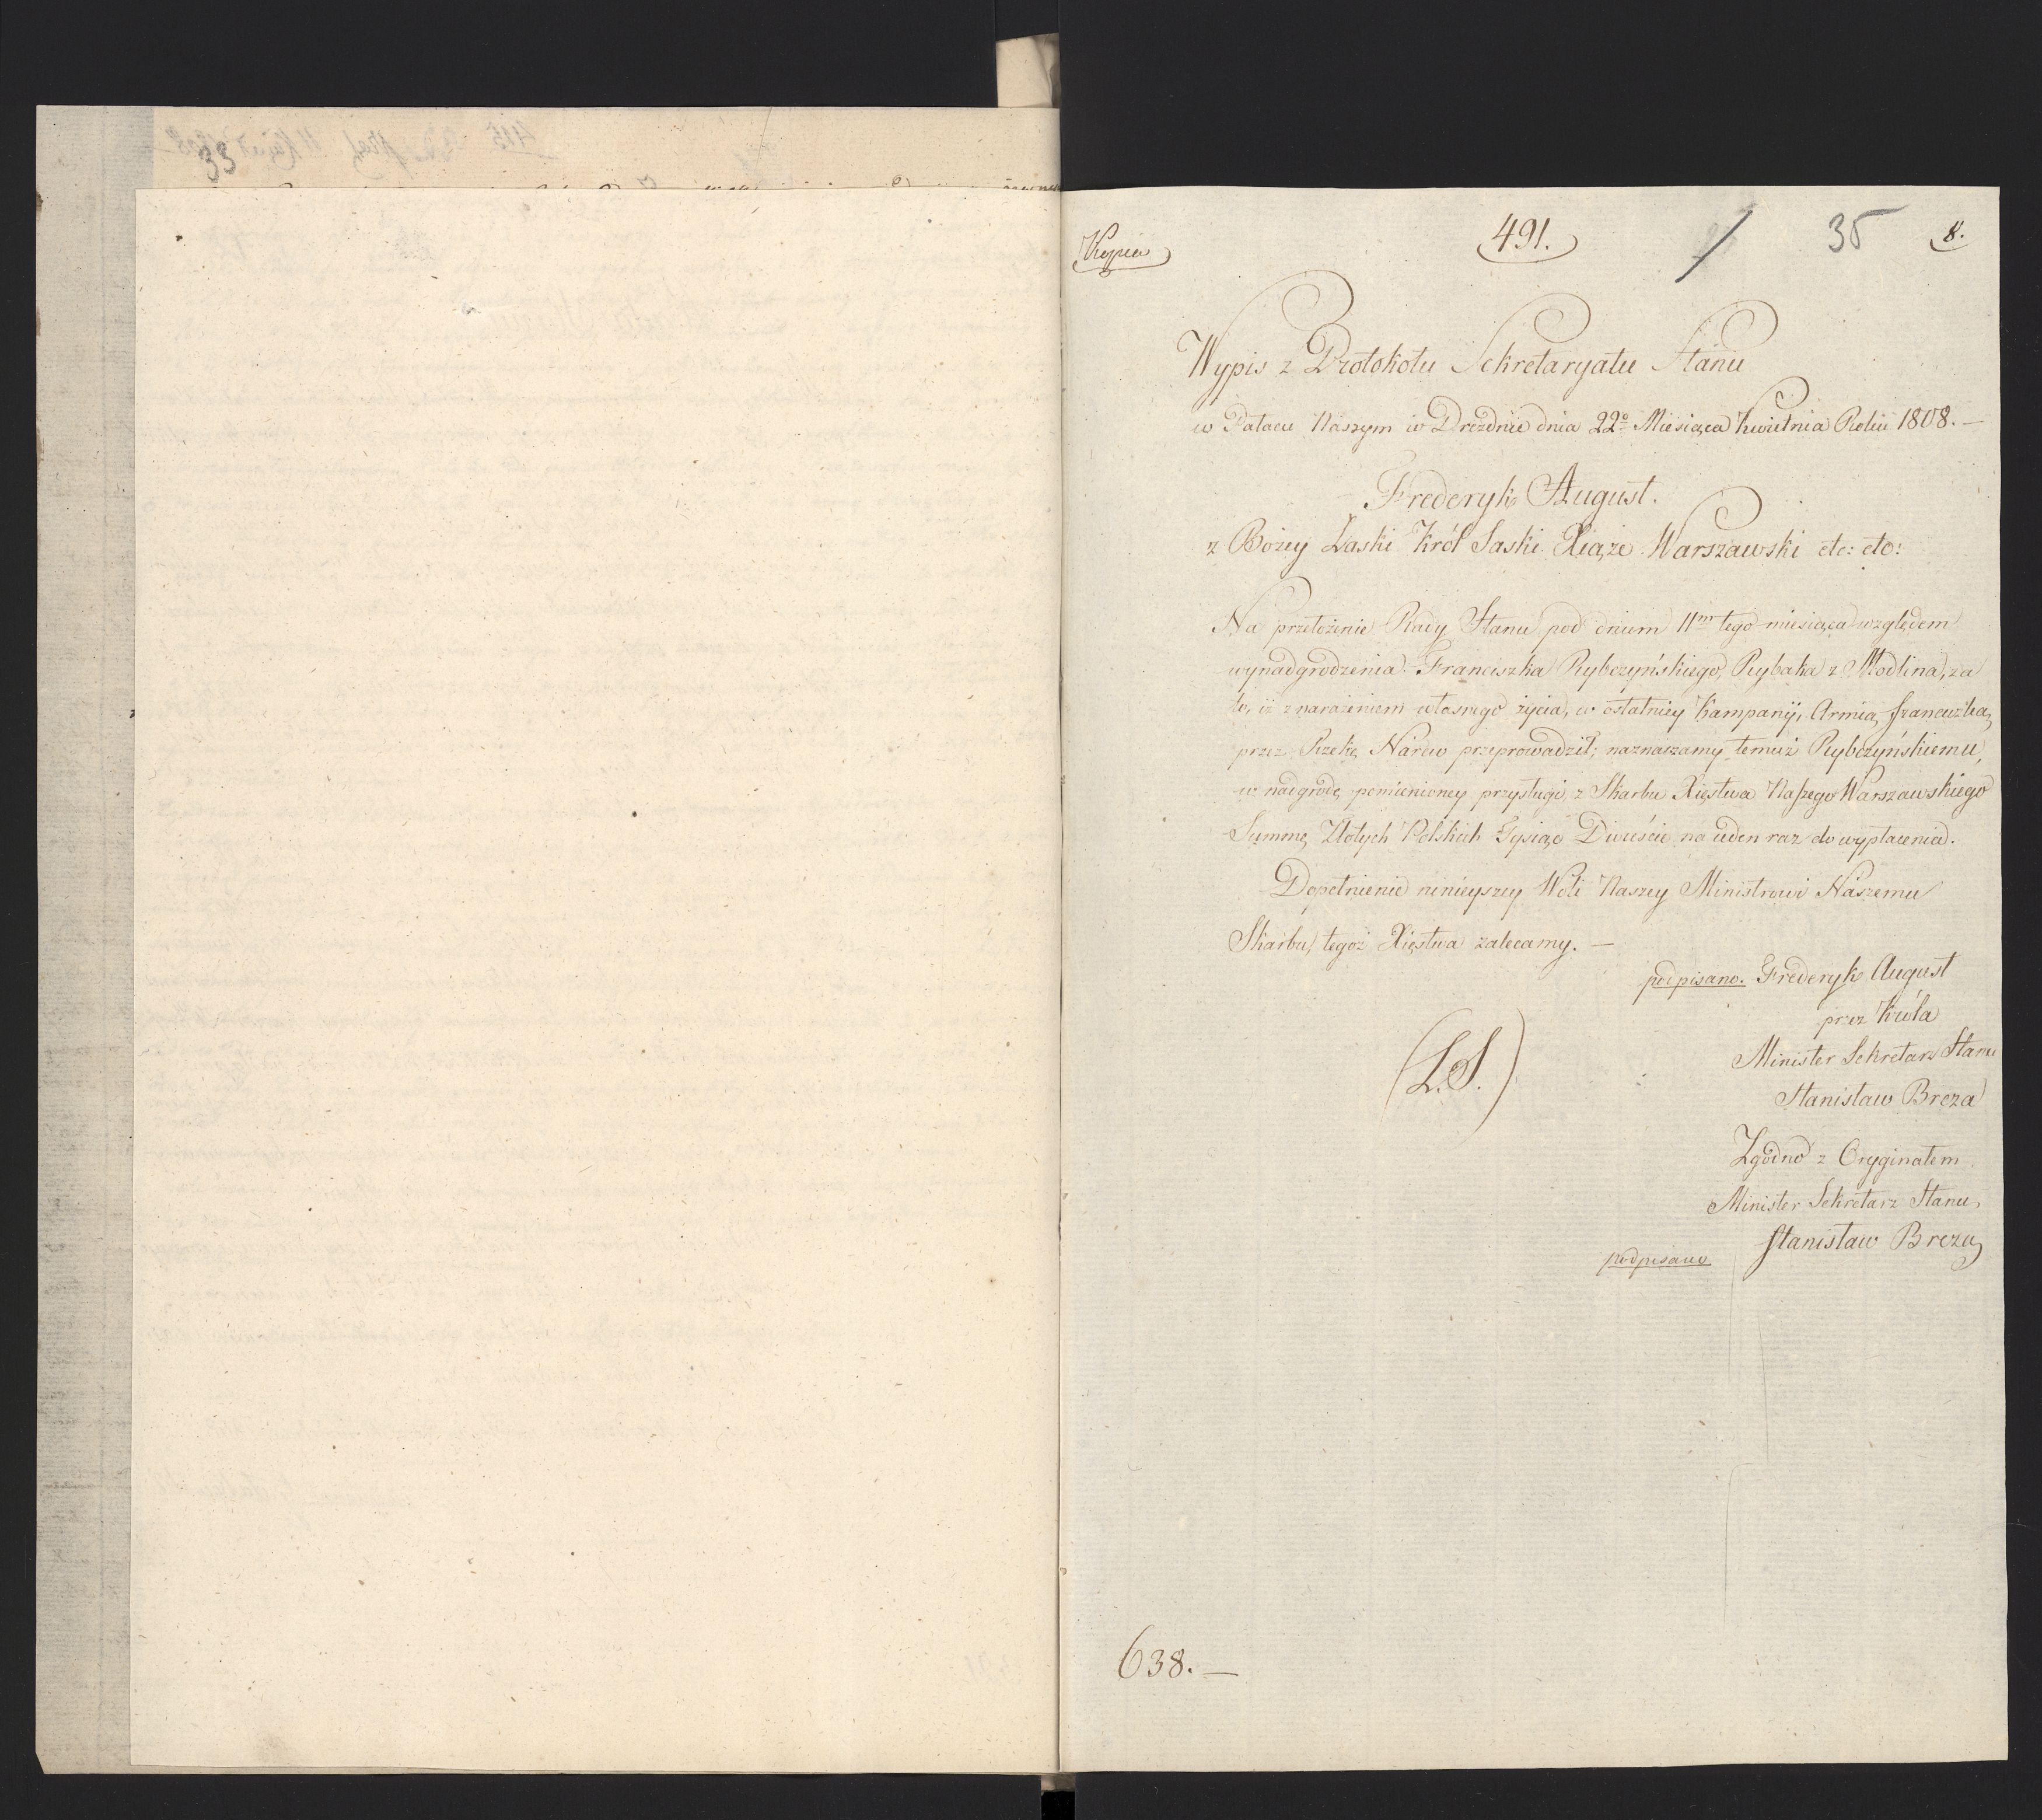 33
491.
35
8.
Kopia
Wypis z Protokołu Sekretaryatu Stanu
w Pałacu Naszym w Dreźnie dnia 22º Miesiąca Kwietnia Roku 1808. —
Frederyk August.
z Bożey Łaski Król Saski Xiąże Warszawski etc: etc:
Na przełożenie Rady Stanu pod dnium 11m tego miesiąca względem
wynadgrodzenia Franciszka Rybczyńskiego, Rybaka z Modlina, za
to, iż z narażeniem własnego życia, w ostatniey Kampanij, Armią francuzką,
przez Rzekę Narew przeprowadził; naznaczamy temuż Rybczyńskiemu,
w nadgrodę pomienioney przysługi, z Skarbu Xięstwa Naszego Warszawskiego
Summę Złotych Polskich Tysiąc Dwieście na ieden raz do wypłacenia.
Dopełnienie ninieyszey Woli Naszey Ministrowi Naszemu
Skarbu, tegoż Xięstwa zalecamy. —
podpisano. Frederyk August
przez Króla
Minister Sekretarz Stanu
(L.S.)
Stanisław Breza
Zgodno z Oryginałem
Minister Sekretarz Stanu,
podpisano Stanisław Breza
638. —